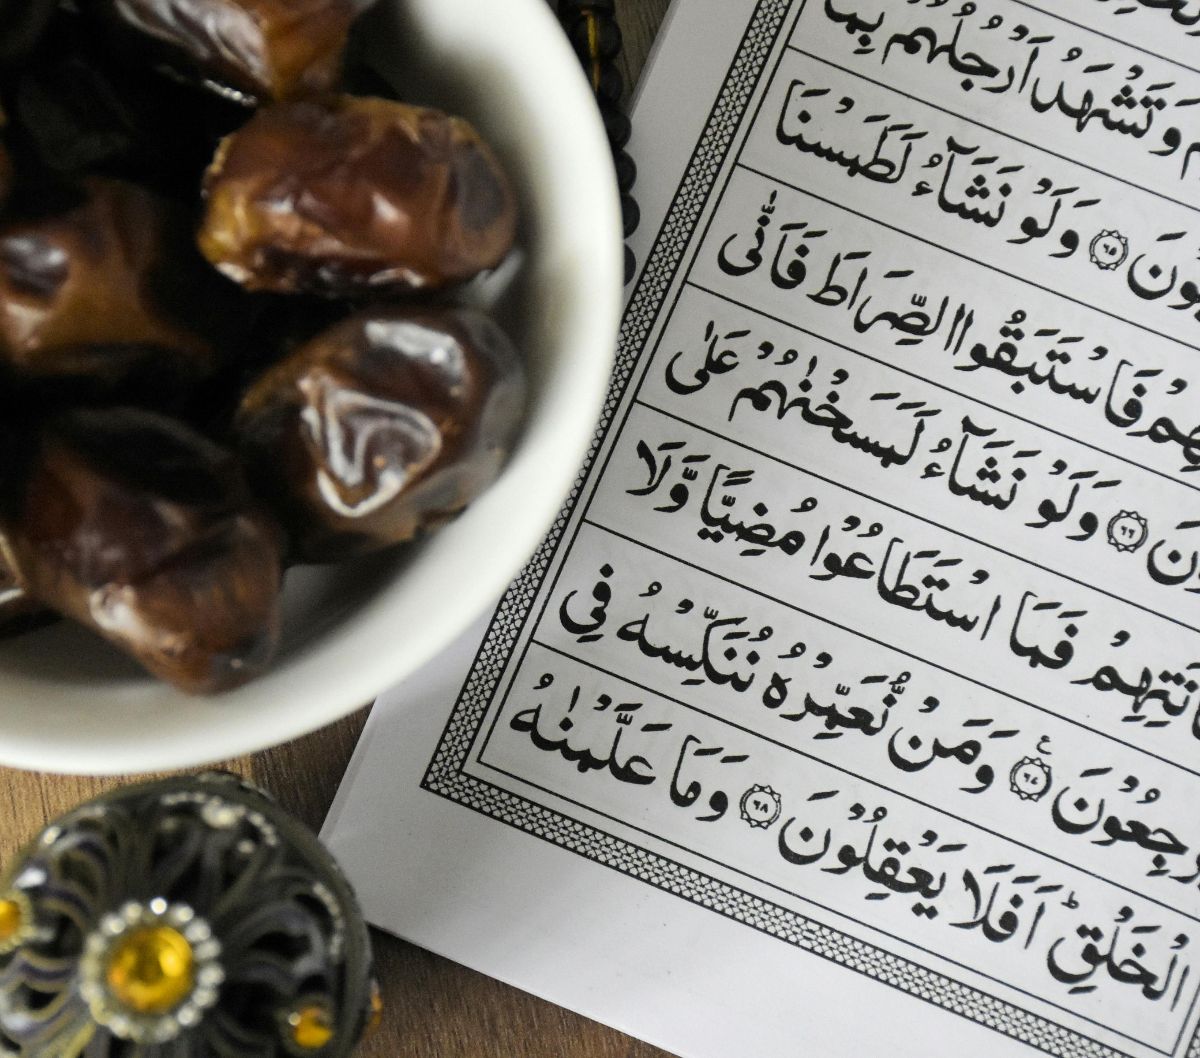 وَتَشْهَدُ اَرْجُلُهُمْ بِمَا
٦٥ وَلَوْ نَشَآءُ لَطَمَسْنَا
فَاسْتَبَقُوا الصِّرَاطَ فَاَنّٰى
٦٦ وَلَوْ نَشَآءُ لَمَسَخْنٰهُمْ عَلٰى
فَمَا اسْتَطَاعُوْا مُضِيًّا وَّلَا
٦٧ وَمَنْ نُّعَمِّرْهُ نُنَكِّسْهُ فِى
الْخَلْقِ ؕ اَفَلَا يَعْقِلُوْنَ ٦٨ وَمَا عَلَّمْنٰهُ